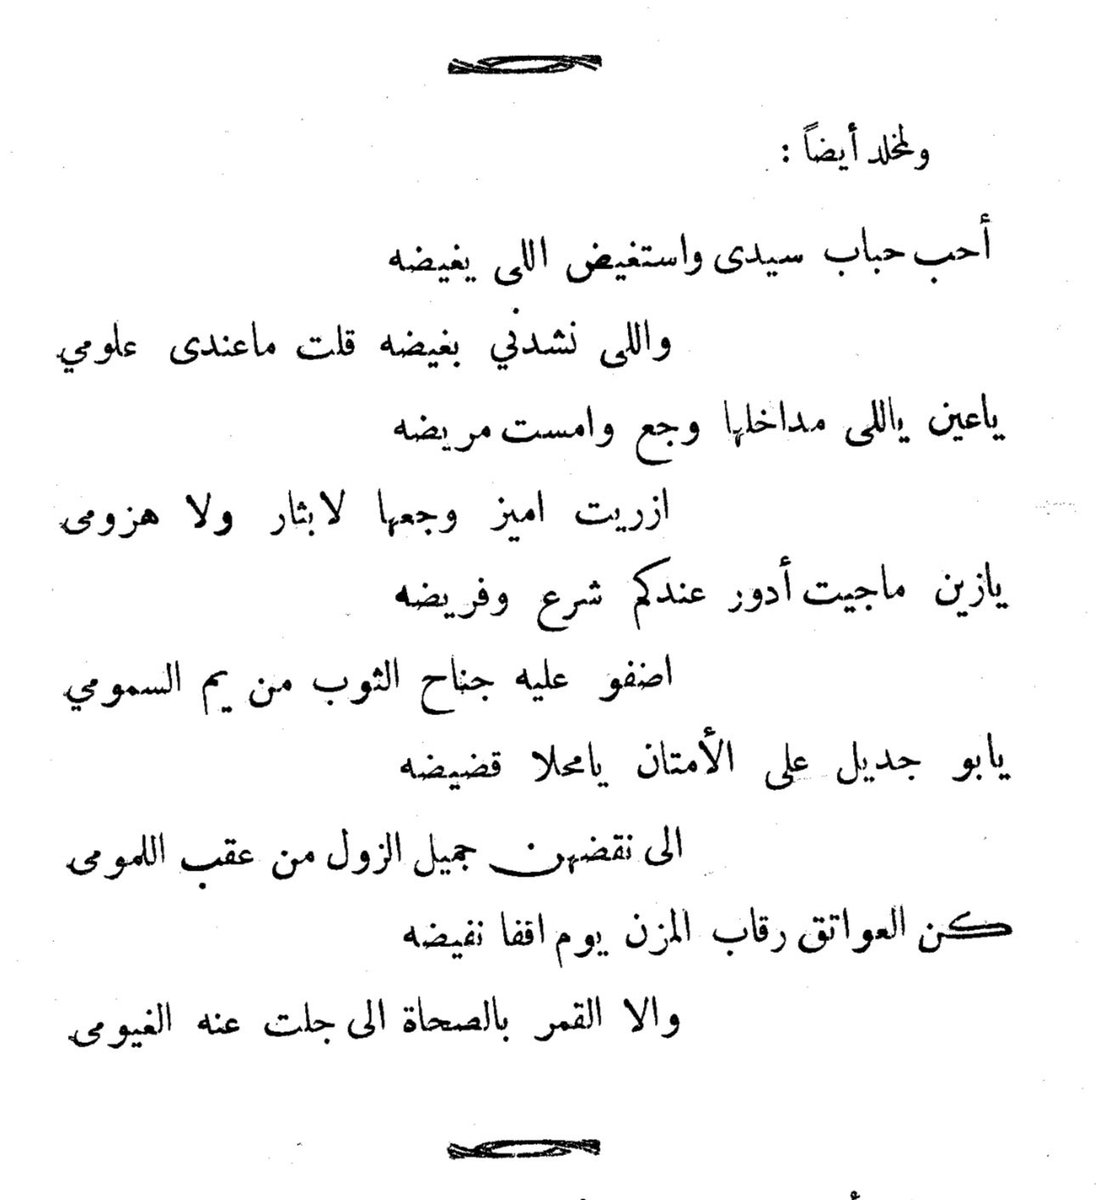 ولمخلد أيضاً :
أحب حباب سيدى واستغيض اللى يغيضه
واللى نشدني بغيضه قلت ماعندى علومي
ياعين ياللى مداخلها وجع وامست مريضه
ازريت اميز وجعها لابثار ولا هزومى
يازين ماجيت أدور عندكم شرع وفريضه
اضفو عليه جناح الثوب من يم السمومي
يابو جديل على الأمتان يامحلا قضيضه
الى نقضهن جميل الزول من عقب اللمومى
كن العواتق رقاب المزن يوم اقفا نفيضه
والا القمر بالصحاة الى جلت عنه الغيومى